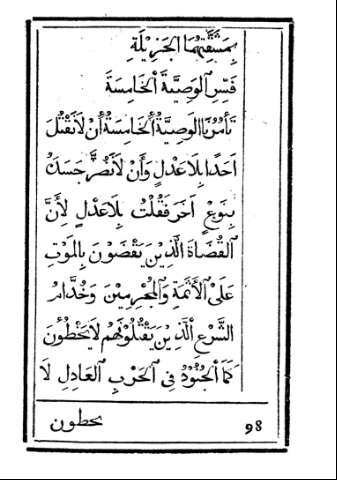 بِمَشَقَّتِهِمَا الجَزِيْلَةِ
فَسِّرِ ٱلوَصِيَّةَ ٱلخَامِسَةَ
تَأمُرُنَا الوَصِيَّةُ ٱلخَامِسَةُ أَنْ لَا نَقْتُلَ
أَحَدًا بِلَا عَدْلٍ وَأَنْ لَا نَضُرَّ جَسَدَهُ
بِنَوعٍ آخَرَ فَقُلْتُ بِلَا عَدْلٍ لِأَنَّ
ٱلقُضَاةَ الَّذِيْنَ يَقْضُوْنَ بِالمَوْتِ
عَلَىٰ الأَثَمَةِ وَٱلمُجْرِمِيْنَ وَخُدَّامُ
الشَّرْعِ ٱلَّذِيْنَ يَقْتُلُوْنَهُمْ لَا يَخْطُؤُنَ
كَمَا ٱلجُنُوْدُ فِي ٱلحَرْبِ ٱلعَادِلِ لَا
يخطون
98